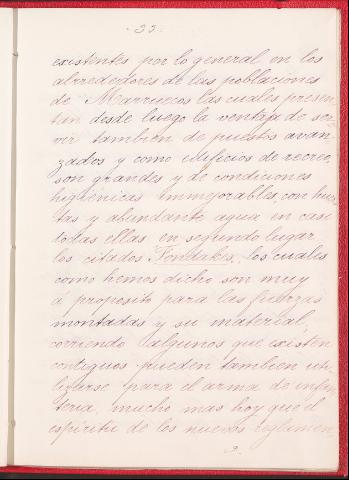 35.
existentes por lo general en los
alrrededores de las poblaciones
de Marruecos las cuales presen-
tan desde luego la ventaja de ser-
vir tambien de puestos avan-
zados y como edificios de recreo,
son grandes y de condiciones
higiénicas inmejorables, con huer-
tas y abundante agua en casi
todas ellas en segundo lugar
los citados Fondakes, los cuales
como hemos dicho son muy
á proposito para las fuerzas
montadas y su material,
corriendo algunos que existen
contiguos pueden tambien uti-
lizarse para el arma de infan-
teria, mucho mas hoy que el
espiritu de los nuevos reglamen-